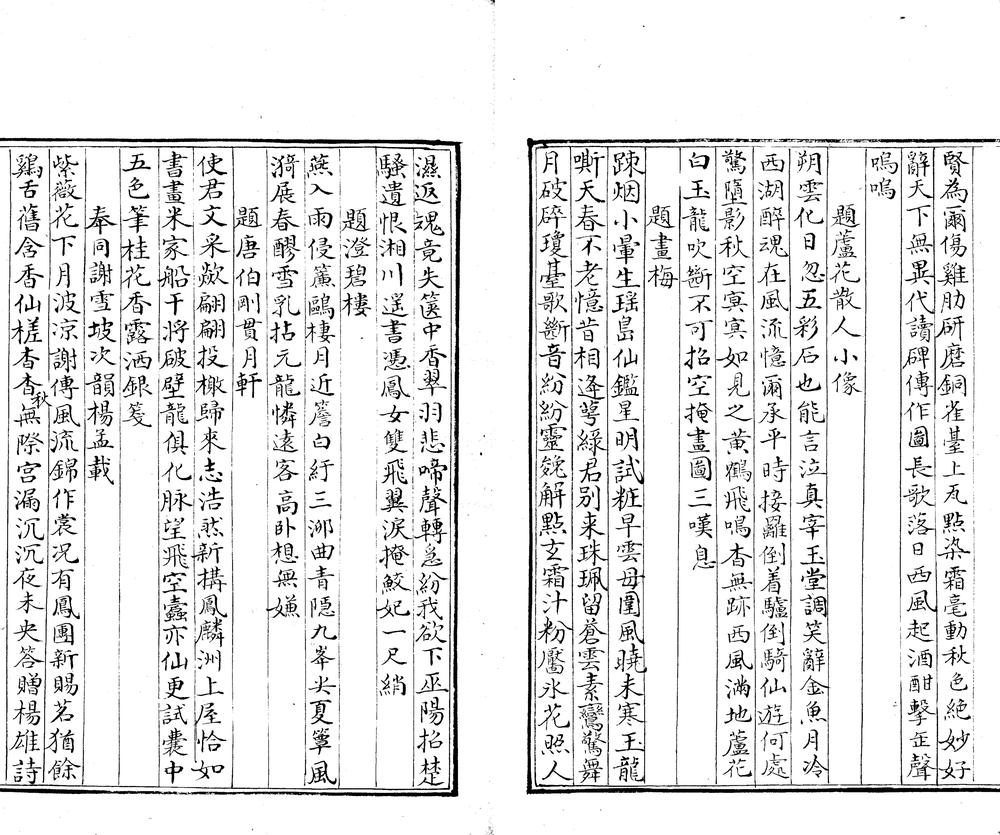 賢為爾傷雞肋研磨銅雀臺上瓦點染霜毫動秋色絕妙好
辭天下無異代讀碑傳作圖長歌落日西風起酒酣擊缶聲
嗚嗚
題蘆花散人小像
朔雲化日忽五彩石也能言泣真宰玉堂調笑辭金魚月冷
西湖醉魂在風流憶爾承平時接䍦倒着驢倒騎仙遊何處
驚墮影秋空冥冥如見之黄鶴飛鳴杳無跡西風滿地蘆花
白玉龍吹斷不可招空掩畫圖三嘆息
題畫梅
踈烟小暈生瑶島仙鑑星明試粧早雲母圍風曉未寒玉龍
嘶天春不老憶昔相逢萼綠君别来珠珮留蒼雲素鸞驚舞
月破碎瓊臺歌斷音紛紛靈䰟解點玄霜汁粉靨氷花照人
濕返魂竟失篋中香翠羽悲啼聲轉急紛我欲下巫陽招楚
騷遺恨湘川遥書憑鳳女雙飛翼淚掩鮫妃一尺綃
題澄碧樓
燕入雨侵簾鷗棲月近簷白紵三泖曲青隱九峯尖夏簟風
漪展春醪雪乳拈元龍憐遠客高卧想無嫌
題唐伯剛貫月軒
使君文采歘翩翩投檄歸來志浩然新搆鳳麟洲上屋恰如
書畫米家船干將破壁龍俱化脉望飛空蠹亦仙更試囊中
五色筆桂花香露洒銀箋
奉同謝雪坡次韻楊孟載
紫薇花下月波凉謝傅風流錦作裳况有鳳團新賜茗猶餘
鷄舌舊含香仙槎杳杳秋無際宫漏沉沉夜未央答贈楊雄詩